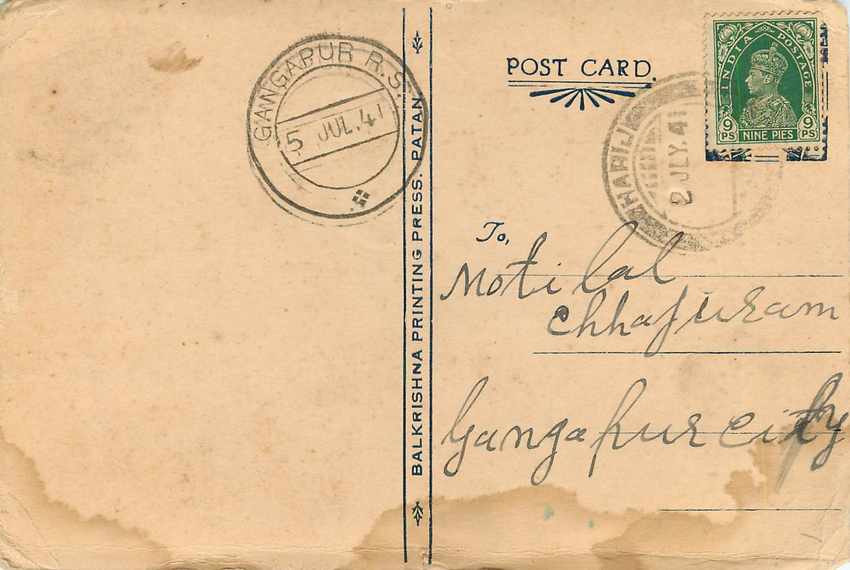 GANGAPUR R.S.
5 JUL. 41
BALKRISHNA PRINTING PRESS. PATAN
POST CARD.
INDIA POSTAGE
9 PS
9 PS
NINE PIES
HARIJ
2 JLY. 41
To,
Motilal
Chhajuram
Gangapur City